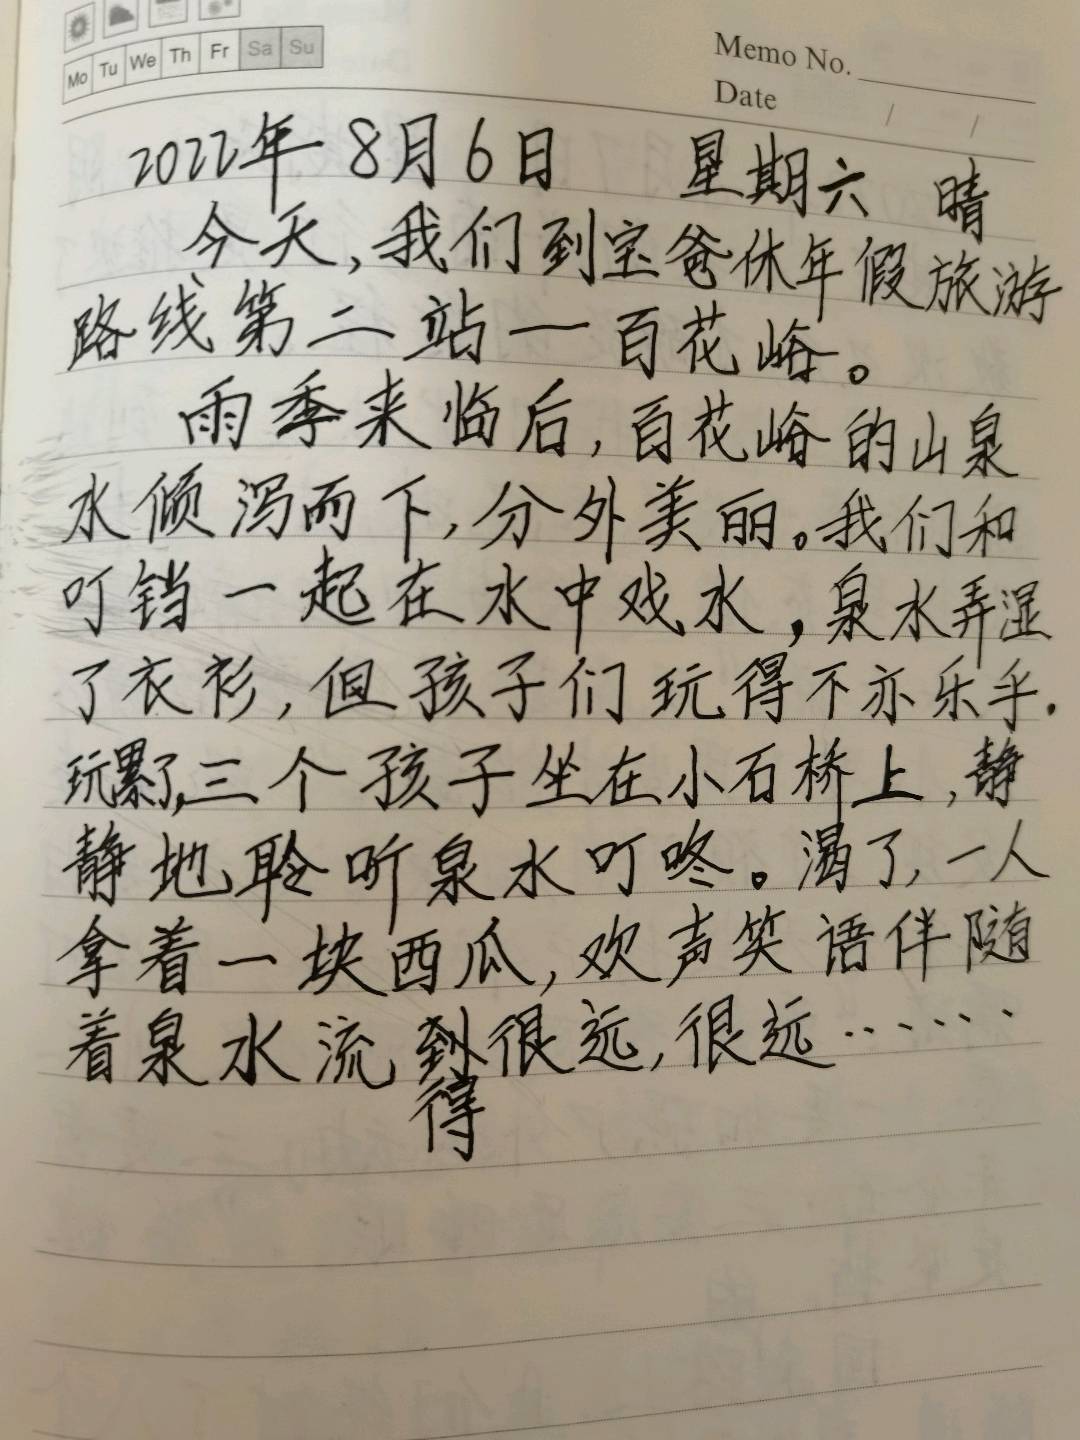 Mo Tu We Th Fr Sa Su
Memo No.
Date / /
2022年8月6日 星期六 晴
今天,我们到宝爸休年假旅游
路线第二站一百花峪。
雨季来临后,百花峪的山泉
水倾泻而下,分外美丽。我们和
叮铛一起在水中戏水,泉水弄湿
了衣衫,但孩子们玩得不亦乐乎.
玩累了,三个孩子坐在小石桥上,静
静地聆听泉水叮咚。渴了,一人
拿着一块西瓜,欢声笑语伴随
着泉水流到很远,很远……
得